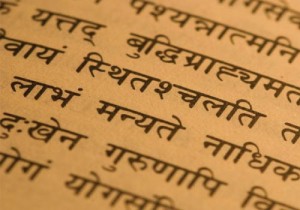 पश्यन्नात्मनि
यत्तद् बुद्धिग्राह्यमत
वायं स्थितश्चलति त
लाभं मन्यते नाधिक
दुःखेन गुरुणापि वि
योगं